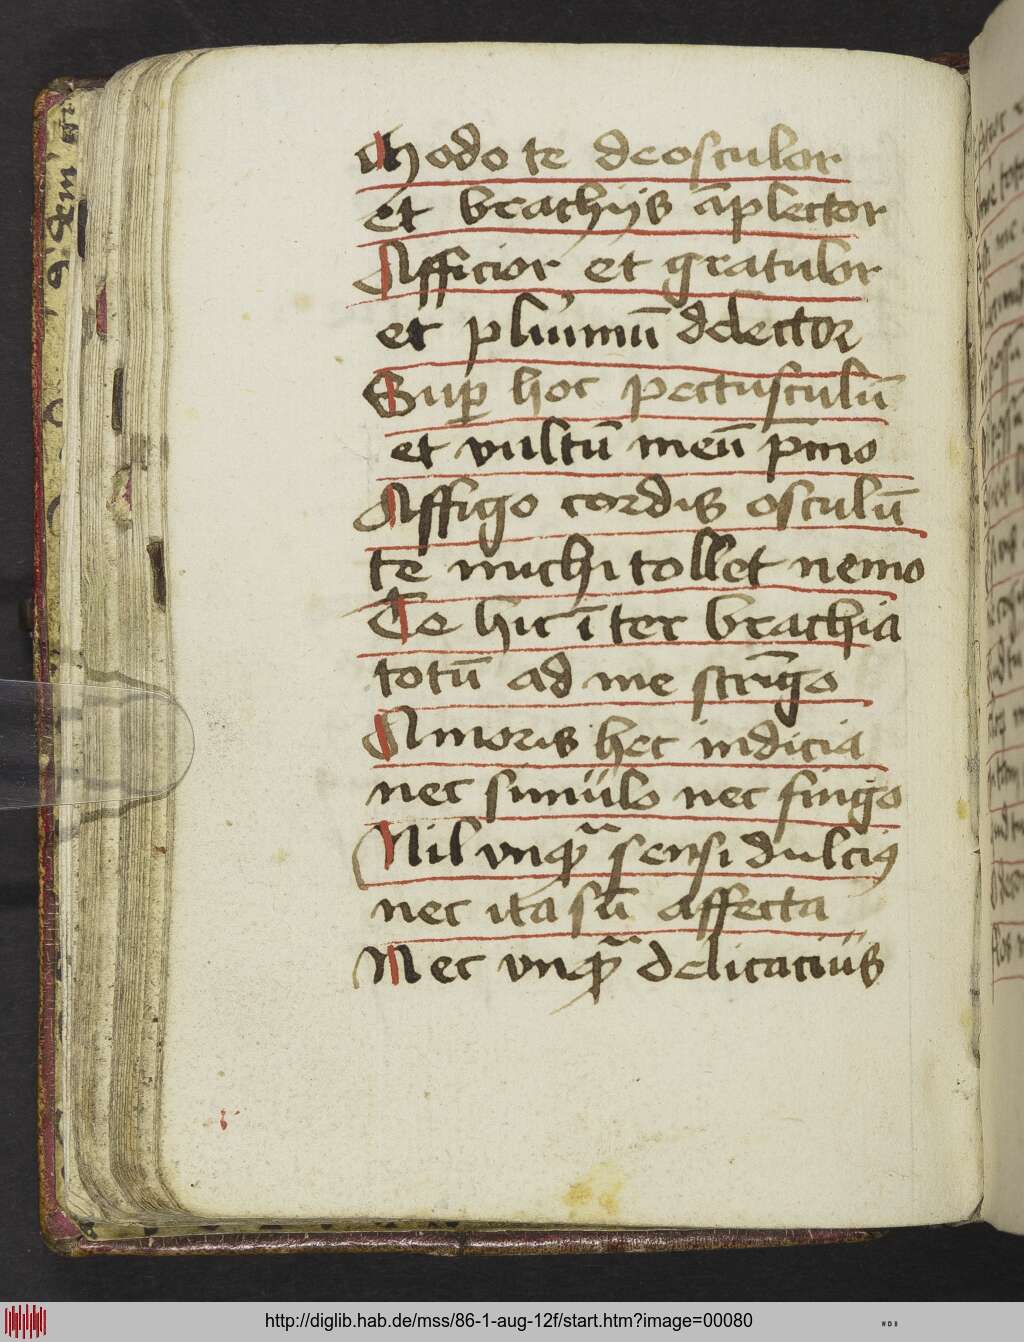 Modo te deosculor
et brachijs āplector
Afficior et gratulor
et plurimū delector
Sup̄ hoc pectusculū
et vultū meū p̄mo
Affigo cordis osculū
te michi tollet nemo
Te hic īter brachia
totū ad me strīgo
Amoris hec indicia
nec simulo nec fingo
Nil vnqᷓ sensi dulciꝰ
nec ita sū affecta
Nec vnqᷓ deliciacius
http://diglib.hab.de/mss/86-1-aug-12f/start.htm?image=00080